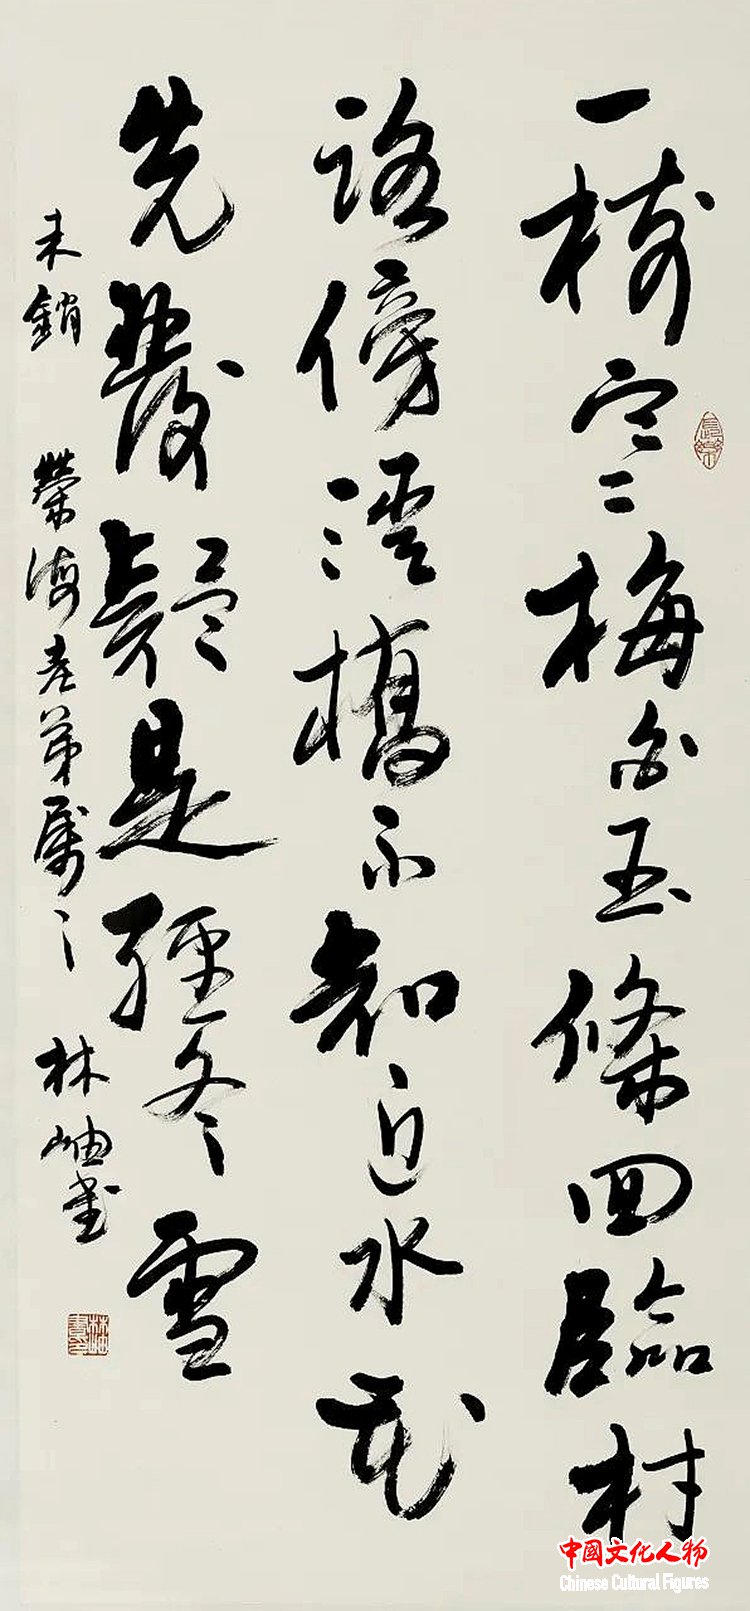 一樹寒梅白玉條回臨村
路傍溪橋不知近水花
先發疑是經冬雪
未銷 榮海老弟屬之 林岫書
中國文化人物
Chinese Cultural Figures